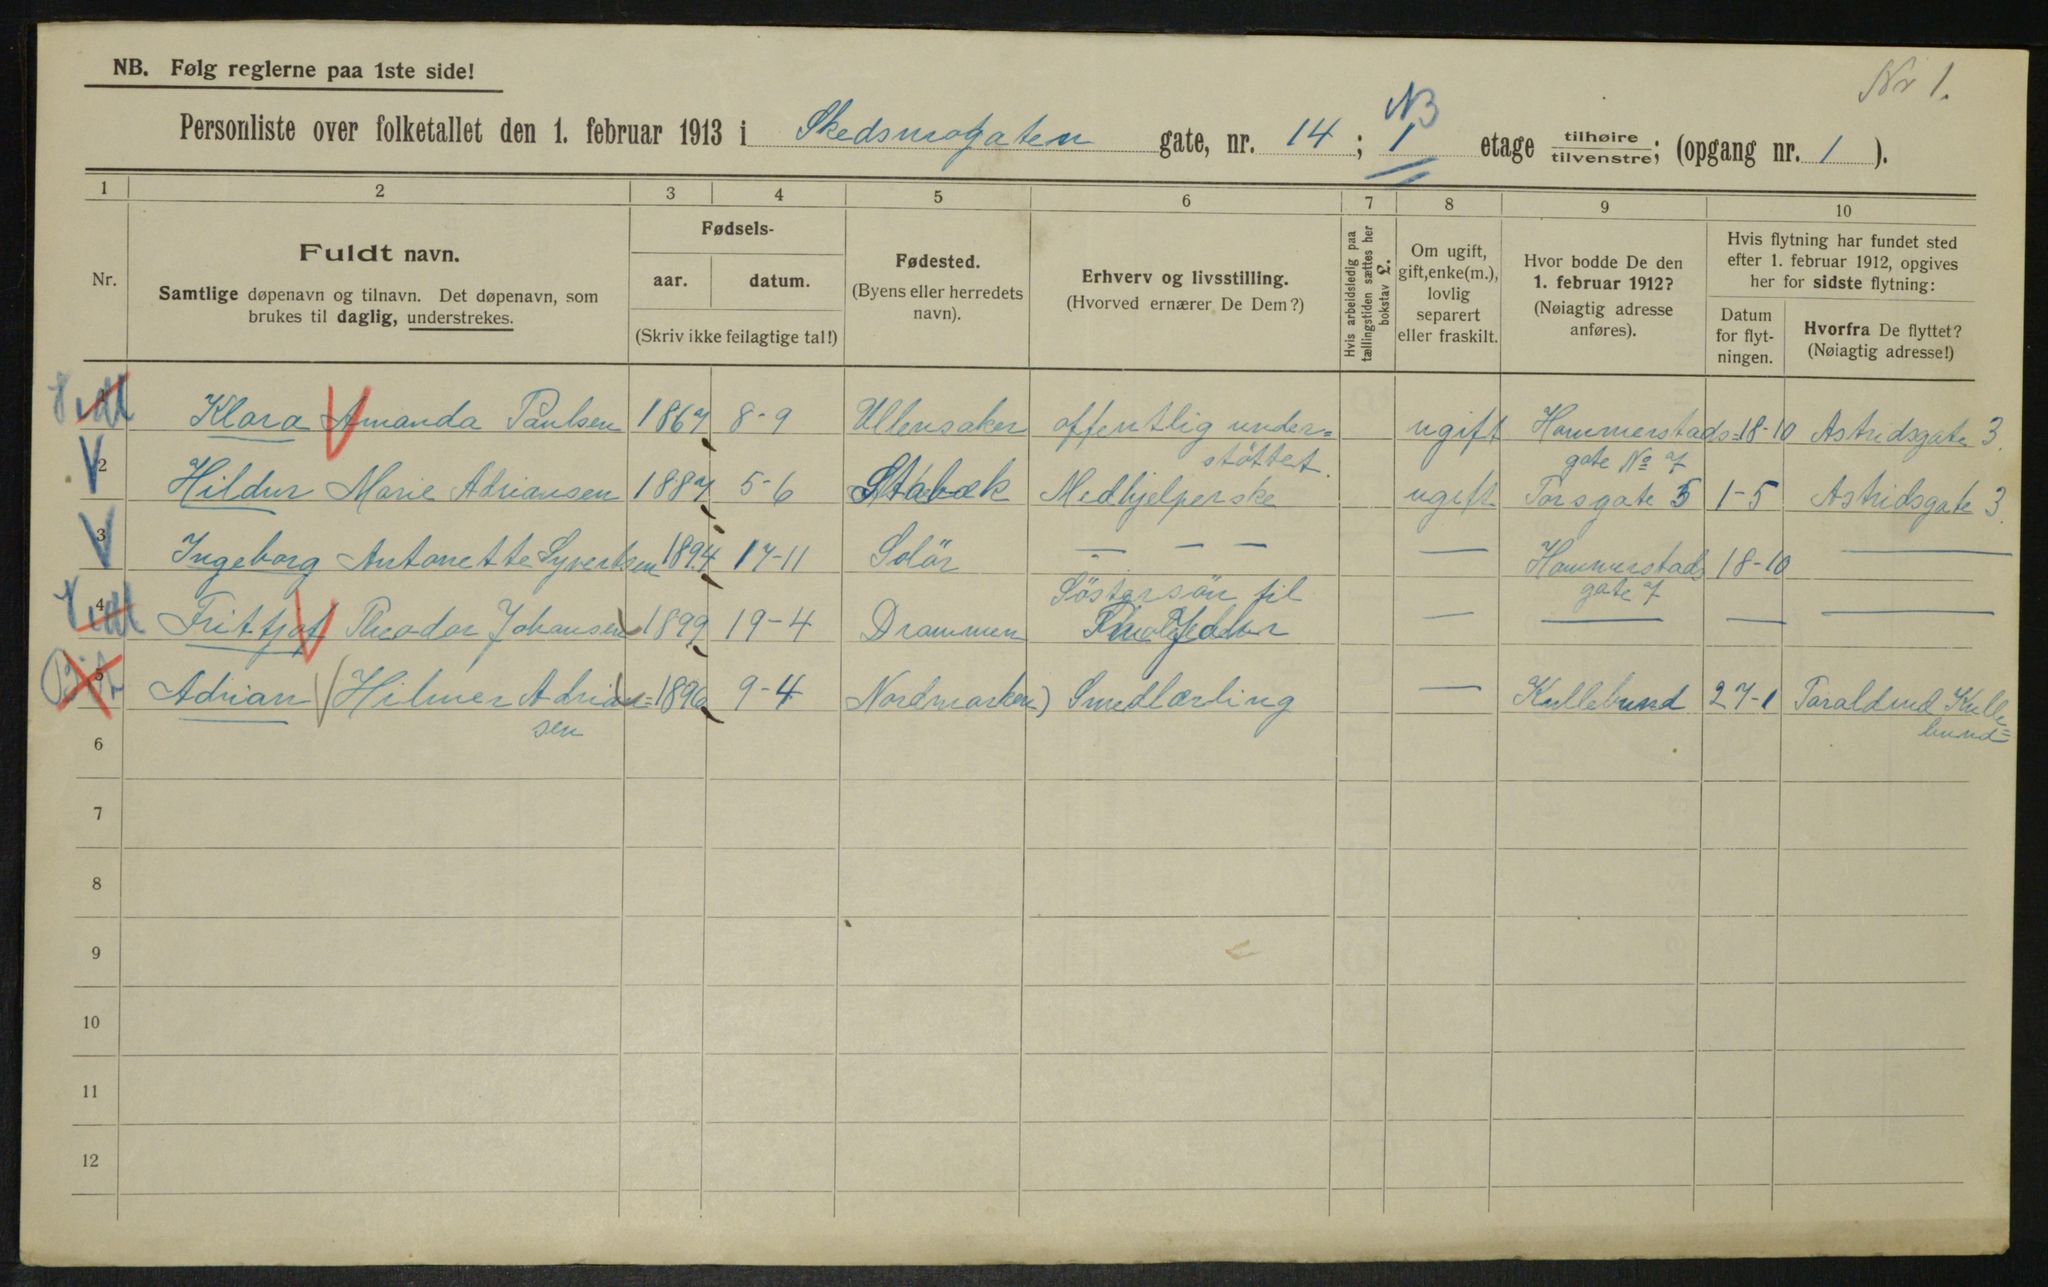 Nr 1.
NB. Følg reglerne paa 1ste side!
NB
Personliste over folketallet den 1. februar 1913 i Skedsmogaten gate, nr. 14 ; 1 etage tilhøire tilvenstre; (opgang nr. 1 ).
1 2 3 4 5 6 7 8 9 10
Nr.
Fuldt navn.
Samtlige døpenavn og tilnavn. Det døpenavn, som
brukes til daglig, understrekes.
Fødsels-
aar. datum.
(Skriv ikke feilagtige tal!)
Fødested.
(Byens eller herredets
navn).
Erhverv og livsstilling.
(Hvorved ernærer De Dem?)
Hvis arbeidsledig paa
tællingstiden sættes her
bokstav £.
Om ugift,
gift, enke(m.),
lovlig
separert
eller fraskilt.
Hvor bodde De den
1. februar 1912?
(Nøiagtig adresse
anføres).
Hvis flytning har fundet sted
efter 1. februar 1912, opgives
her for sidste flytning:
Datum
for flyt-
ningen.
Hvorfra De flyttet?
(Nøiagtig adresse!)
1 Klara Amanda Paulsen 1867 8-9 Ullensaker offentlig under= ugift Hammerstads= 18-10 Astridsgate 3.
støttet gate No 7
2 Hildur Marie Adriansen 1887 5-6 Stabæk Medhjelperske ugift Torsgate 5 1-5 Astridsgate 3.
3 Ingeborg Antonette Syvertsen 1894 17-11 Solör — — — — Hammerstads 18-10 —
gate 7
Söstersön til
4 Fritjof Theodor Johansen 1899 19-4 Drammen — — — —
5 Adrian Hilmer Adrian= 1896 9-4 Nordmarken) Smedlærling — Kullebund 27-1 Taraldrud Kulle
sen bund=
6
7
8
9
10
11
12